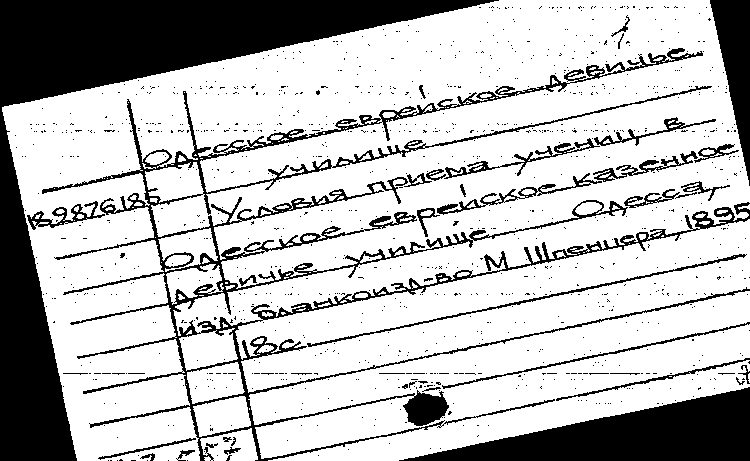 Одесское еврейское девичье
училище
189876185
Условия приема учениц в
Одесское еврейское казенное
девичье училище. Одесса,
изд. бланкоизд-во М Шпенцера, 1895
18с.